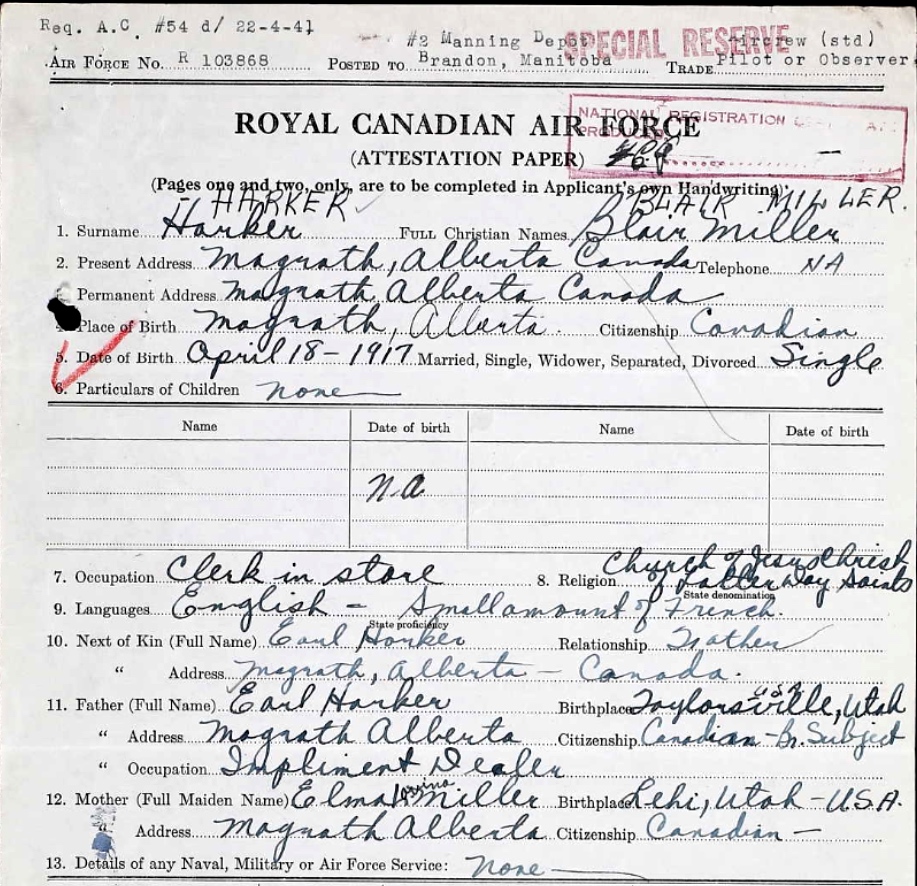 Req. A.C. #54 d/ 22-4-41
#2 Manning Depot SPECIAL RESERVE Aircrew (std)
AIR FORCE NO. R 103868 POSTED TO Brandon, Manitoba TRADE Pilot or Observer
NATIONAL REGISTRATION
ROYAL CANADIAN AIR FORCE
(ATTESTATION PAPER)
(Pages one and two, only, are to be completed in Applicant's own Handwriting)
- HARKER BLAIR MILLER.
1. Surname Harker FULL Christian Names Blair Miller
2. Present Address Magrath, Alberta Canada Telephone NA
Permanent Address Magrath Alberta Canada
4. Place of Birth Magrath, Alberta. Citizenship Canadian
5. Date of Birth April 18-1917 Married, Single, Widower, Separated, Divorced Single
6. Particulars of Children none
Name Date of birth Name Date of birth
na
7. Occupation Clerk in store 8. Religion Church of Jesus Christ
of Latter Day Saints
State denomination
9. Languages English - Small amount of French.
State proficiency
10. Next of Kin (Full Name) Earl Harker Relationship Father
" Address Magrath, Alberta - Canada.
11. Father (Full Name) Earl Harker Birthplace Taylorsville, Utah USA
" Address Magrath Alberta Citizenship Canadian - Br. Subject
" Occupation Impliment Dealer
12. Mother (Full Maiden Name) Elma Miller Birthplace Lehi, Utah - U.S.A.
" Address Magrath Alberta Citizenship Canadian -
13. Details of any Naval, Military or Air Force Service: none